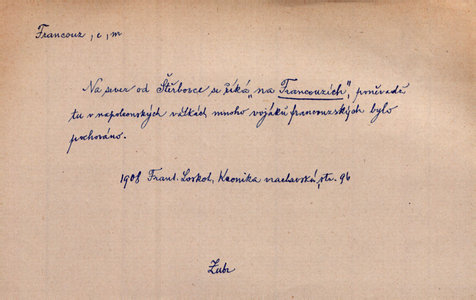 Francouz, e, m
Na sever od Štěrbovce se říká „na Francouzích", poněvadž
tu v napoleonských válkách mnoho vojáků francouzských bylo
pochováno.
1908 Frant. Loskot, Kronika vraclavská, str. 96
Zubr